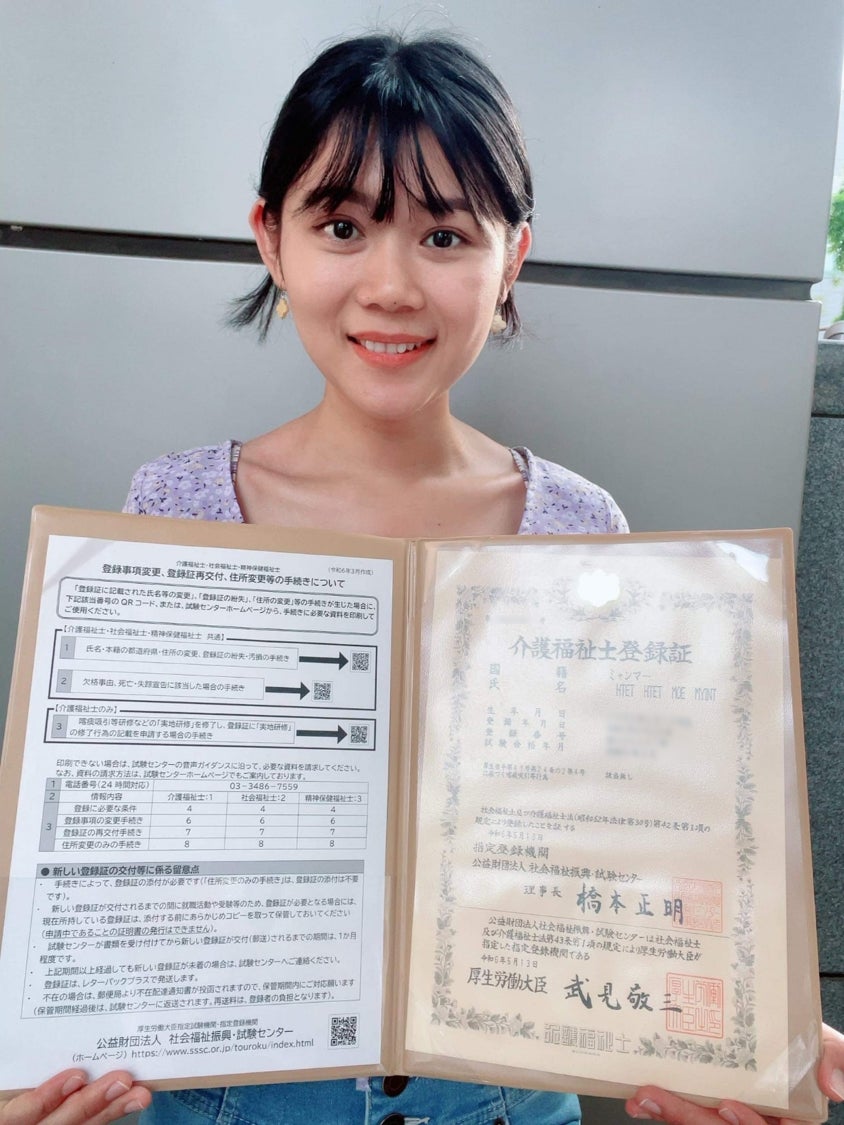 介護福祉士・社会福祉士・精神保健福祉士
(令和6年3月作成)
登録事項変更、登録証再交付、住所変更等の手続きについて
「登録証に記載された氏名等の変更」、「登録証の紛失」、「住所の変更」等の手続きが生じた場合に、
下記該当番号のQRコード、または、試験センターホームページから、手続きに必要な資料を印刷して
ご使用ください。
【介護福祉士・社会福祉士・精神保健福祉士 共通】
1 氏名・本籍の都道府県・住所の変更、登録証の紛失・汚損の手続き
2 欠格事由、死亡・失踪宣告に該当した場合の手続き
【介護福祉士のみ】
3 喀痰吸引等研修などの「実地研修」を修了し、登録証に「実地研修」
の修了行為の記載を申請する場合の手続き
印刷できない場合は、試験センターの音声ガイダンスに沿って、必要な資料を請求してください。
なお、資料の請求方法は、試験センターホームページでもご案内しております。
1 電話番号(24時間対応) 03-3486-7559
2 情報内容 介護福祉士:1 社会福祉士:2 精神保健福祉士:3
3 登録に必要な条件 4 4 4
登録事項の変更手続き 6 6 6
登録証の再交付手続き 7 7 7
住所変更のみの手続き 8 8 8
● 新しい登録証の交付等に係る留意点
・ 手続きによって、登録証の添付が必要です(「住所変更のみの手続き」は、登録証の添付は不要
です)。
・ 新しい登録証が交付されるまでの間に就職活動や受験等のため、登録証が必要となる場合には、
現在所持している登録証は、添付する前にあらかじめコピーを取って保管しておいてください
(申請中であることの証明書の発行はできません)。
・ 試験センターが書類を受け付けてから新しい登録証が交付(郵送)されるまでの期間は、1か月
程度です。
・ 上記期間以上経過しても新しい登録証が未着の場合は、試験センターへご連絡ください。
・ 登録証は、レターパックプラスで発送します。
・ 不在の場合は、郵便局より不在配達通知書が投函されますので、保管期間内にご対応願います
(保管期間経過後は、試験センターに返送されます。再送料は、登録者の負担となります)。
厚生労働大臣指定試験機関・指定登録機関
公益財団法人 社会福祉振興・試験センター
(ホームページ) https://www.sssc.or.jp/touroku/index.html
介護福祉士登録証
国籍 ミャンマー
氏名 HTET HTET MOE MYINT
生年月日
登録年月日
登録番号
試験合格年月
該当無し
社会福祉士及び介護福祉士法(昭和62年法律第30号)第42条第1項の
規定により登録したことを証する
令和6年5月13日
指定登録機関
公益財団法人 社会福祉振興・試験センター
理事長 橋本正明
公益財団法人社会福祉振興・試験センターは社会福祉士
及び介護福祉士法第43条第1項の規定により厚生労働大臣が
指定した指定登録機関である
令和6年5月13日
厚生労働大臣 武見敬三
介護福祉士